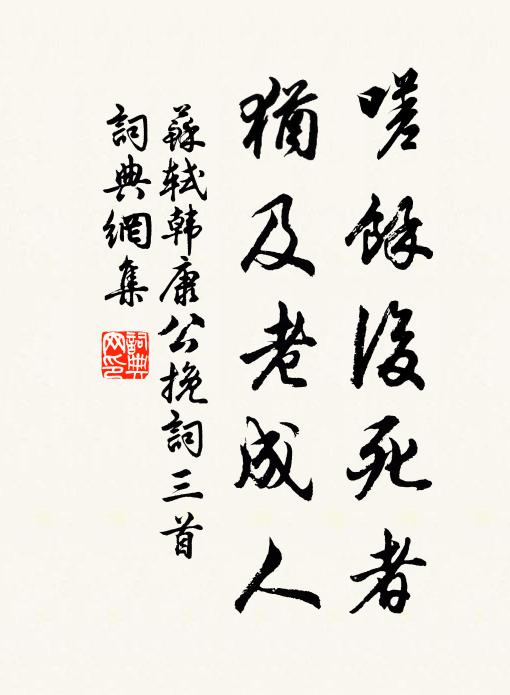 嗟餘後死者
猶及老成人
蘇軾韓康公挽詞三首
詞典網集
詞典網印